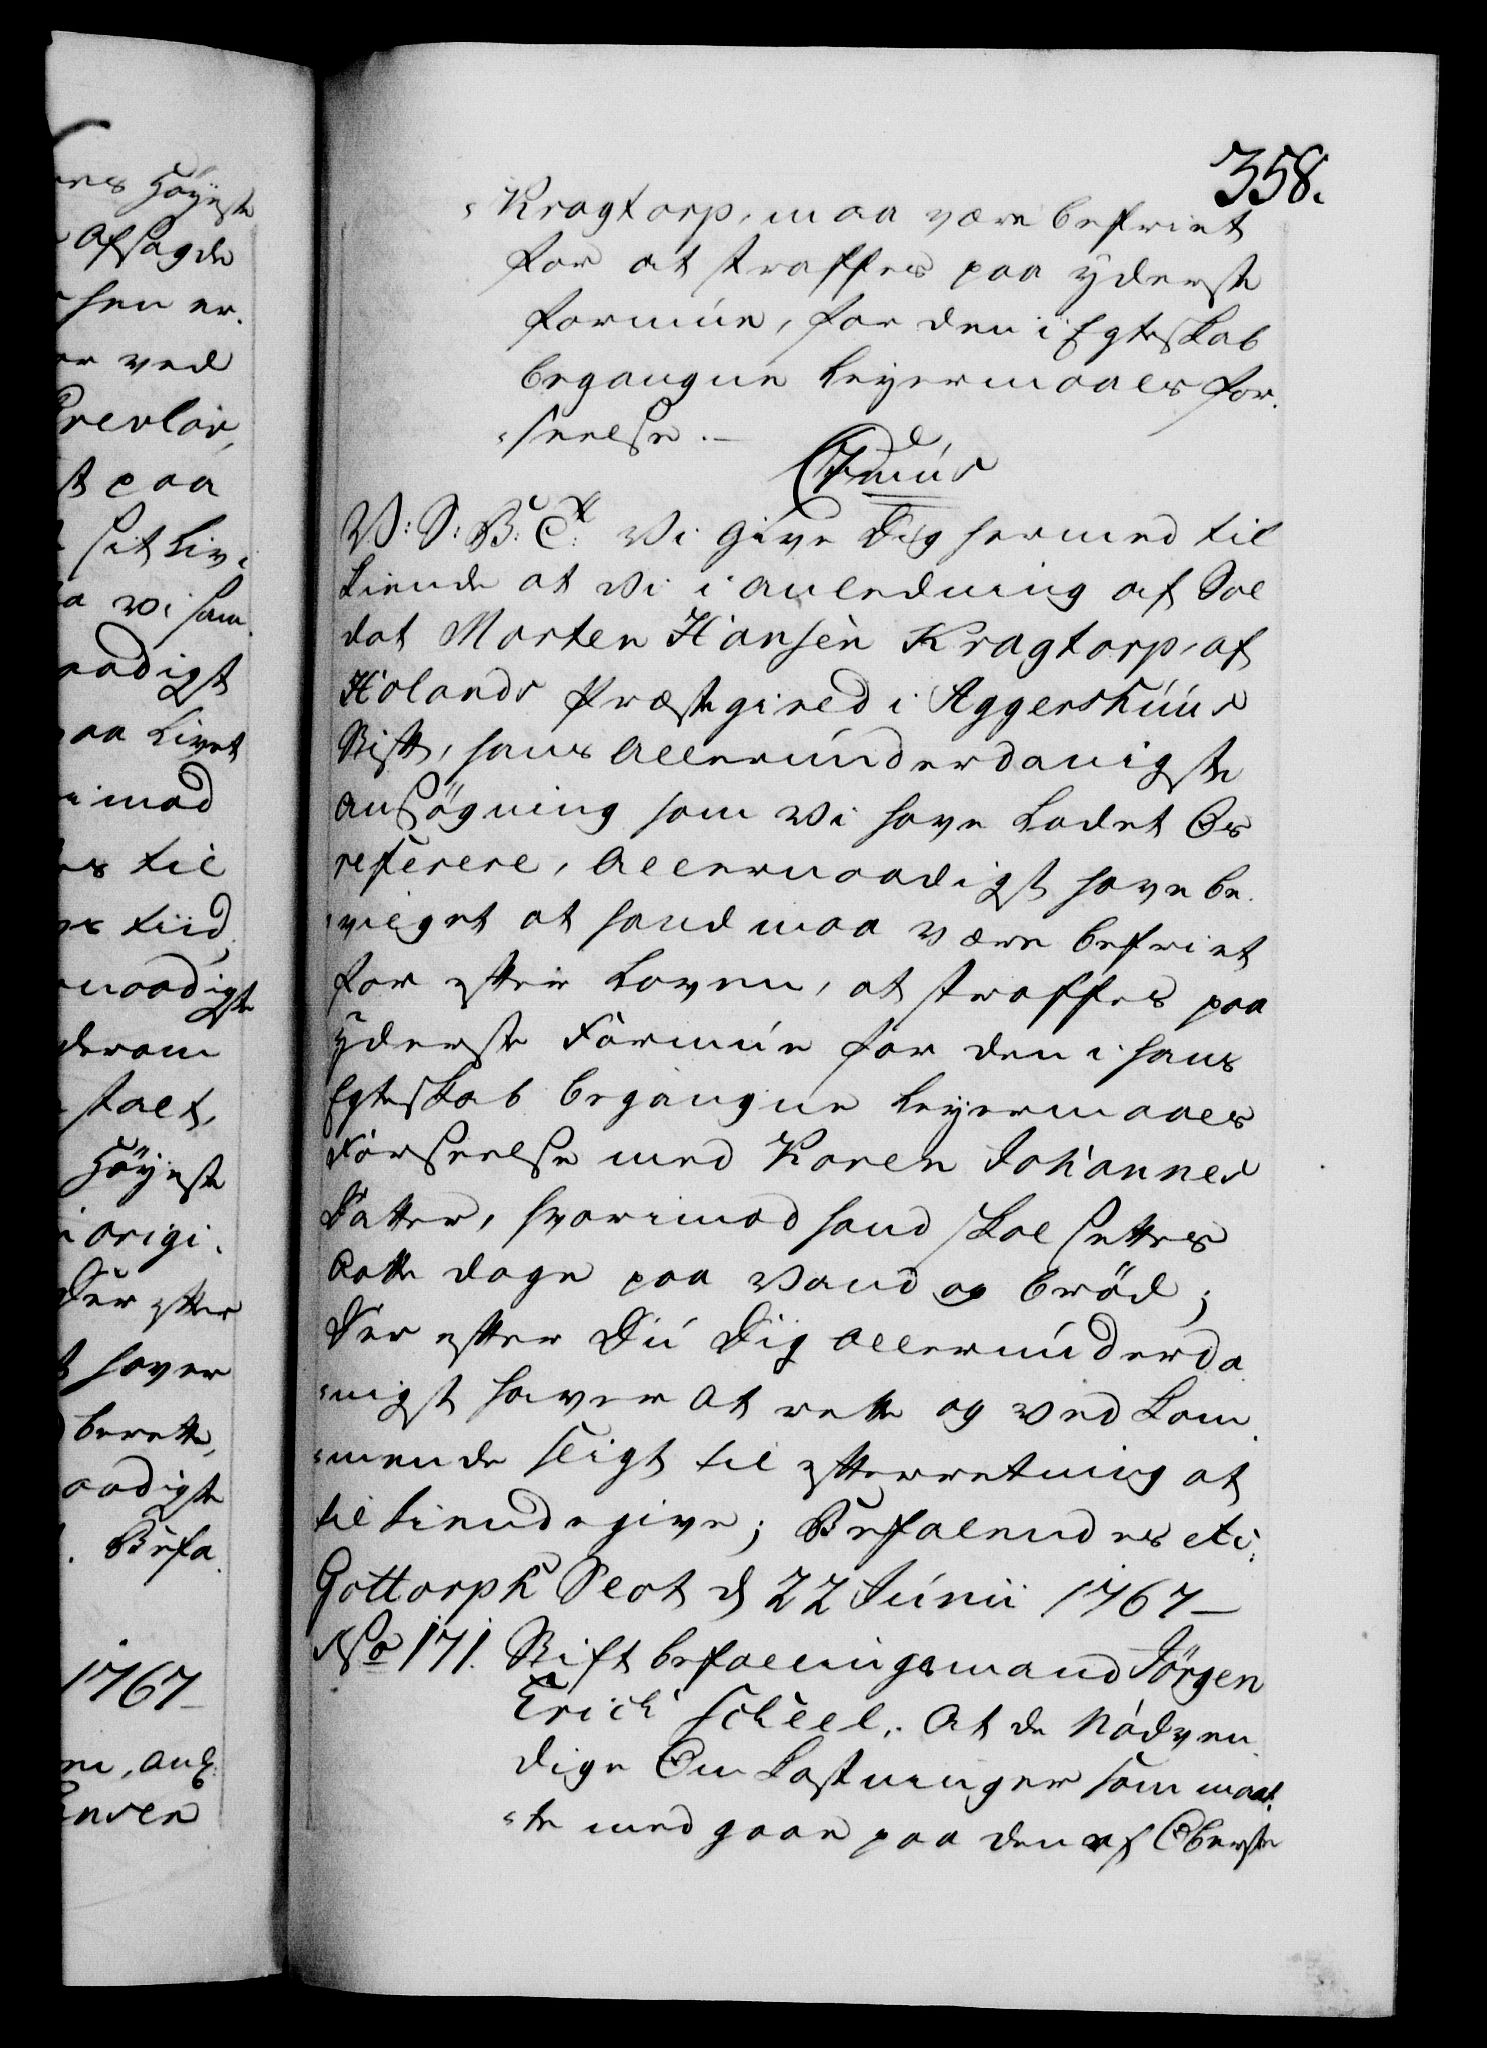 358.
Kragtorp, maa være befriet
for at straffes paa yderste
formúe, for den i Egteskab
begangne Leyermaals for-
"seelse. —
V: S: B: Ct: Vi give Dig hermed til
kiende at Vi i anledning af Sol
dat Morten Hansen Kragtorp, af
Hølands Præstegield i Aggershúús
Stift, hans Allerúnderdanigste
ansøgning som Vi have ladet Os
referere, Allernaadigst have be-
"vilget at hand maa være befriet
for efter Loven, at straffes paa
yderste Formúe for den i hans
Egteskab begangne Leyermaals
Forseelse med Karen Johannes
Datter, hvorimod hand skal settes
Aatte dage paa Vand og brød;
Der efter Dú Dig allerúnderda
"nigst haver at rette og Vedkom-
"mende sligt til efterretning at
tilkiende give; Befalendes etc:
Gottorph Slot d 22 Júnii 1767 —
No 171. Stiftbefalingsmand Jørgen
Erich Scheel. At de Nødven
dige Omkostninger som maat-
"te medgaae paa den af Oberste
ons Høyeste
Afsagde
sen er-
er ved
st paa
sit Liv
Vi ham
aadigt
paa Livet
imod
es til
tiid
naadigste
derom
stalt,
Høyeste
i origi-
Der efter
haver
berette,
aadigste
. Befa-
1767 —